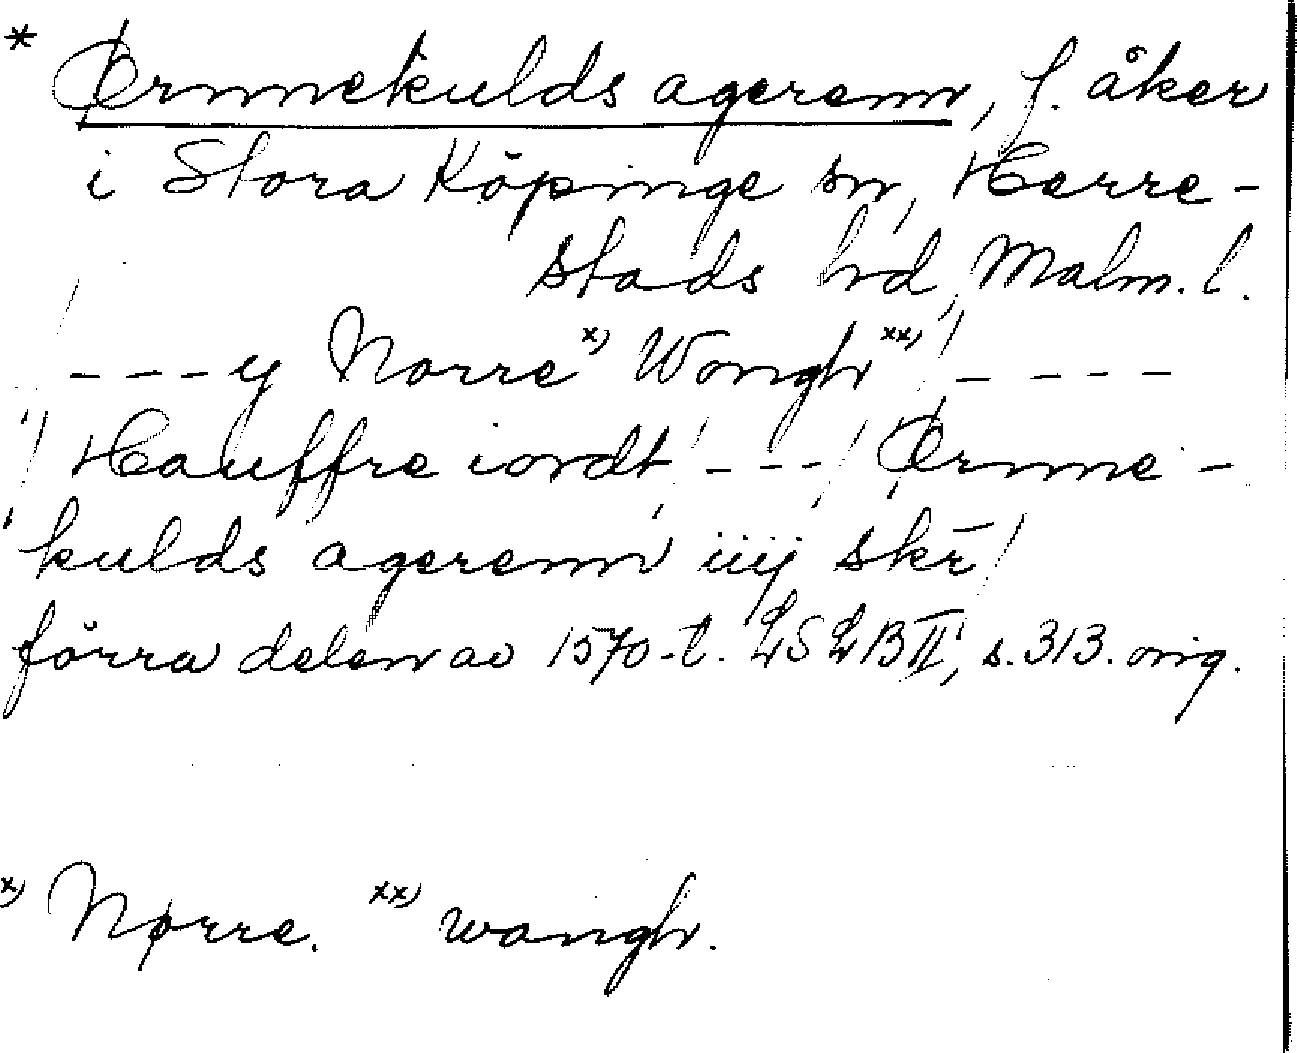 * Ørnnekulds agerenn, f. åker
i Stora Köpinge sn, Herre-
stads hd, Malm. l.
- - - y Norre x) Wongh xx) / - - - -
/ Hauffre iordt, - - - / Ørnne-
kulds agerenn iiij skr̄ /
förra delen av 1570-t. LSLB II, s. 313. orig.
x) Nørre. xx) wangh.